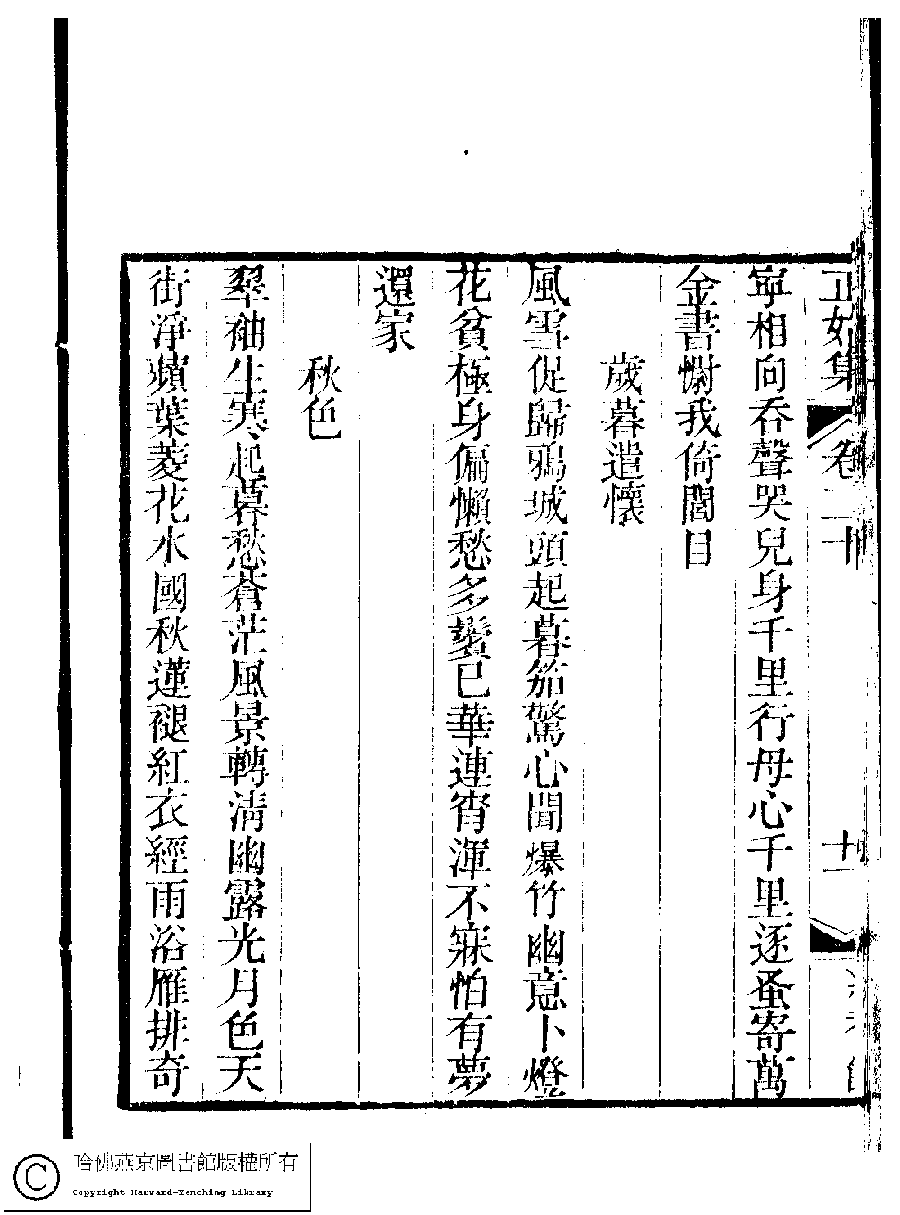 正始集 卷二十 十一
寧相向吞聲哭兒身千里行母心千里逐蚤寄萬
金書慰我倚閭目
歲暮遣懷
風雪促歸鴉城頭起暮笳驚心聞爆竹幽意卜燈
花貧極身偏懶愁多鬢已華連宵渾不寐怕有夢
還家
秋色
翠袖生寒起暮愁蒼茫風景轉清幽露光月色天
街淨蘋葉菱花水國秋蓮褪紅衣經雨浴雁排奇
哈佛燕京圖書館版權所有
Copyright Harvard-Yenching Library